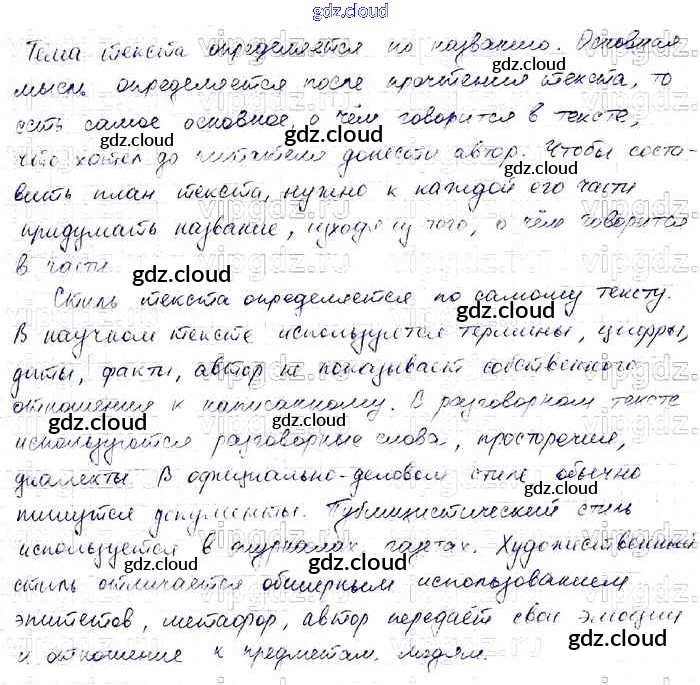 gdz.cloud
Тема текста определяется по названию. Основная
мысль определяется после прочтения текста, то
есть самое основное, о чём говорится в тексте,
gdz.cloud
что хотел до читателя донести автор. Чтобы соста-
вить план текста, нужно к каждой его части
gdz.cloud
придумать название, исходя из того, о чём говорится
в части.
gdz.cloud
Стиль текста определяется по самому тексту.
gdz.cloud
В научном тексте используются термины, цифры,
даты, факты, автор не показывает собственного
gdz.cloud
отношения к написанному. В разговорном тексте
gdz.cloud
используются разговорные слова, просторечия,
диалекты. В официально-деловом стиле обычно
gdz.cloud
пишутся документы. Публицистический стиль
используется в журналах, газетах. Художественный
gdz.cloud
стиль отличается обширным использованием
эпитетов, метафор, автор передаёт свои эмоции
gdz.cloud
и отношение к предметам, людям.
gdz.cloud
vipgdz.ru